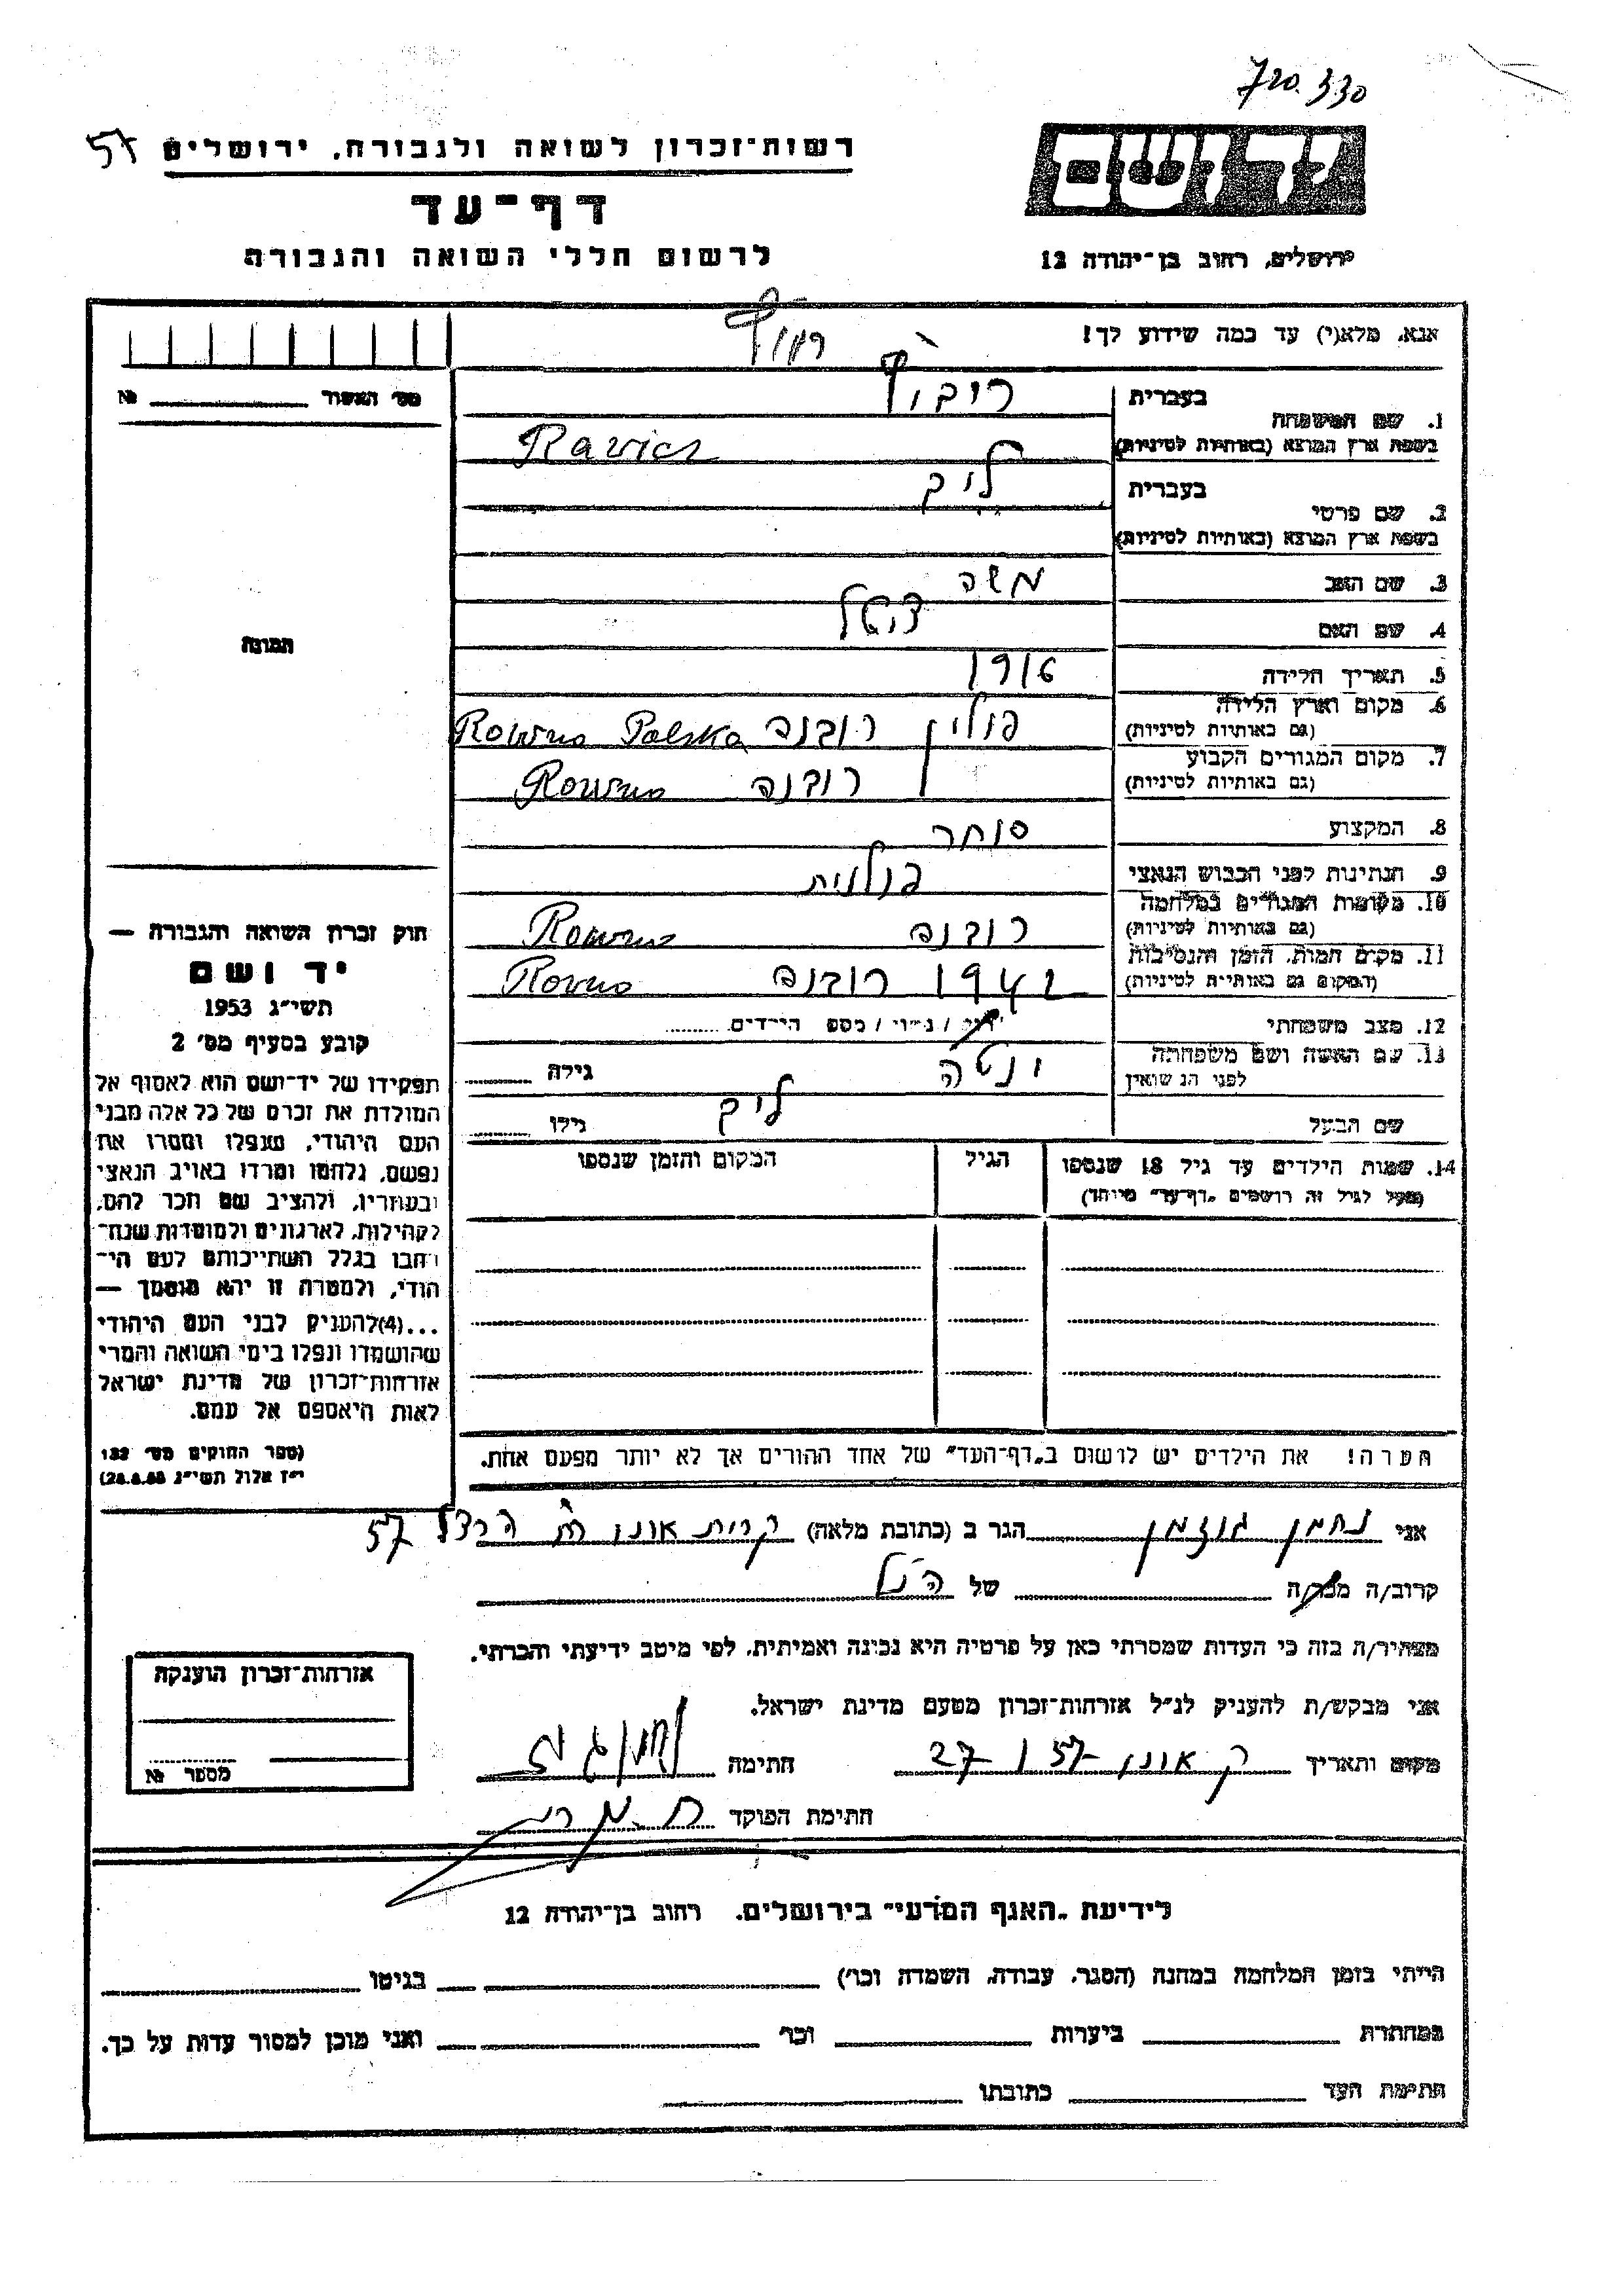 720.330
57
רשות־זכרון לשואה ולגבורה, ירושלים
דף־עד
לרשום חללי השואה והגבורה
יד ושם
ירושלים, רחוב בן־יהודה 12
אנא, מלא(י) עד כמה שידוע לך!
מס׳ האשור № ________
התמונה
1. שם המשפחה
בעברית
בשפת ארץ המוצא (באותיות לטיניות)
Ravicz
2. שם פרטי
בעברית
בשפת ארץ המוצא (באותיות לטיניות)
3. שם האב משה
4. שם האם
5. תאריך הלידה
6. מקום וארץ הלידה (גם באותיות לטיניות) פולין רובנה Rowno Polska
7. מקום המגורים הקבוע (גם באותיות לטיניות) רובנה Rowno
8. המקצוע סוחר
9. הנתינות לפני הכבוש הנאצי פולנית
10. מקומות המגורים במלחמה (גם באותיות לטיניות) רובנה Rowno
11. מקום המות, הזמן והנסיבות (המקום גם באותיות לטיניות) 1942 רובנה Rovno
12. מצב משפחתי / נשוי / מספר הילדים ........
13. שם האשה ושם משפחתה לפני הנשואין גילה ........
שם הבעל גילו ........
14. שמות הילדים עד גיל 18 שנספו (מעל לגיל זה רושמים „דף־עד״ מיוחד)
הגיל
המקום והזמן שנספו
הערה! את הילדים יש לרשום ב„דף־העד״ של אחד ההורים אך לא יותר מפעם אחת.
חוק זכרון השואה והגבורה —
יד ושם
תשי״ג 1953
קובע בסעיף מס׳ 2
תפקידו של יד־ושם הוא לאסוף אל
המולדת את זכרם של כל אלה מבני
העם היהודי, שנפלו ומסרו את
נפשם, נלחמו ומרדו באויב הנאצי
ובעוזריו, ולהציב שם וזכר להם,
לקהילות, לארגונים ולמוסדות שנח־
רבו בגלל השתייכותם לעם הי־
הודי, ולמטרה זו יהא מוסמך —
...(4)להעניק לבני העם היהודי
שהושמדו ונפלו בימי השואה והמרי
אזרחות־זכרון של מדינת ישראל
לאות היאספם אל עמם.
(ספר החוקים מס׳ 132
י״ז אלול תשי״ג 28.8.53)
אני נחמן גוזמן הגר ב (כתובת מלאה) קרית אונו רח׳ הרצל 57
קרוב/ה מכר/ה של הנ״ל
מצהיר/ה בזה כי העדות שמסרתי כאן על פרטיה היא נכונה ואמיתית, לפי מיטב ידיעתי והכרתי.
אני מבקש/ת להעניק לנ״ל אזרחות־זכרון מטעם מדינת ישראל.
מקום ותאריך ק אונו 27 חתימה
חתימת הפוקד
אזרחות־זכרון הוענקה
מספר №
לידיעת „האגף המדעי״ בירושלים, רחוב בן־יהודה 12
הייתי בזמן המלחמה במחנה (הסגר, עבודה, השמדה וכו׳) ________ בגיטו ________
במחתרת ________ ביערות ________ וכו׳ ________ ואני מוכן למסור עדות על כך.
חתימת העד ________ כתובתו ________